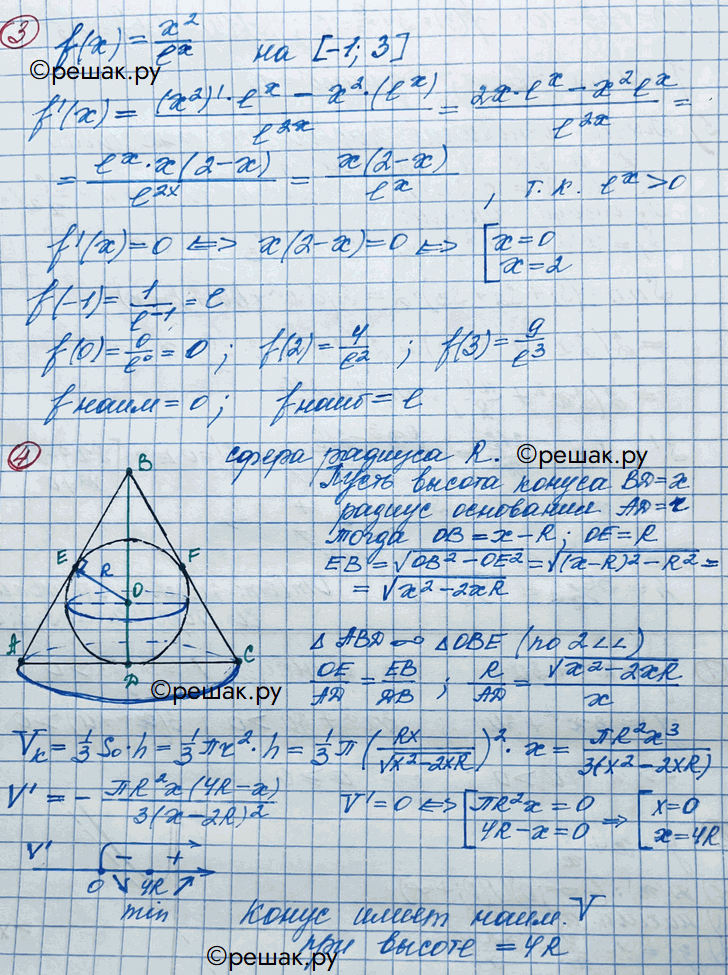 3 f(x) = x²/eˣ на [-1; 3]
©решак.ру
f'(x) = ((x²)'·eˣ - x²·(eˣ))/e²ˣ = (2x·eˣ - x²eˣ)/e²ˣ =
= (eˣ·x(2-x))/e²ˣ = x(2-x)/eˣ, т.к. eˣ>0
f'(x)=0 ⟺ x(2-x)=0 ⟺ [x=0
x=2
f(-1)= 1/e⁻¹ = e
f(0)= 0/e⁰ = 0; f(2)= 4/e²; f(3)= 9/e³
fнаим=0; fнаиб=e
4 сфера радиуса R. ©решак.ру
Пусть высота конуса BD=x
радиус основания AD=r
тогда OB=x-R; OE=R
EB=√(OB²-OE²)=√((x-R)²-R²)=
=√(x²-2xR)
B
E
F
R
O
A
C
D
©решак.ру
△ABD ∾ △OBE (по 2∠∠)
OE/AD = EB/DB; R/AD = √(x²-2xR)/x
Vк = 1/3 Sо·h = 1/3 πr²·h = 1/3 π(Rx/√(x²-2xR))²·x = πR²x³/3(x²-2xR)
V' = - πR²x(4R-x)/3(x-2R)² V'=0 ⟺ [πR²x=0
4R-x=0 ⇒ [x=0
x=4R
V' - +
0 ↘ 4R ↗
min
Конус имеет наим. V
при высоте =4R
©решак.ру